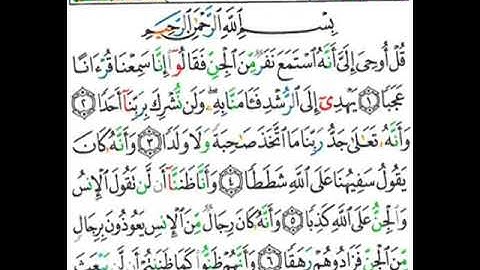 بِسْمِ ٱللَّهِ ٱلرَّحْمَٰنِ ٱلرَّحِيمِ
قُلْ أُوحِىَ إِلَىَّ أَنَّهُ ٱسْتَمَعَ نَفَرٌ مِّنَ ٱلْجِنِّ فَقَالُوٓا۟ إِنَّا سَمِعْنَا قُرْءَانًا
عَجَبًا ١ يَهْدِىٓ إِلَى ٱلرُّشْدِ فَـَٔامَنَّا بِهِۦ وَلَن نُّشْرِكَ بِرَبِّنَآ أَحَدًا ٢
وَأَنَّهُۥ تَعَٰلَىٰ جَدُّ رَبِّنَا مَا ٱتَّخَذَ صَٰحِبَةً وَلَا وَلَدًا ٣ وَأَنَّهُۥ كَانَ
يَقُولُ سَفِيهُنَا عَلَى ٱللَّهِ شَطَطًا ٤ وَأَنَّا ظَنَنَّآ أَن لَّن تَقُولَ ٱلْإِنسُ
وَٱلْجِنُّ عَلَى ٱللَّهِ كَذِبًا ٥ وَأَنَّهُۥ كَانَ رِجَالٌ مِّنَ ٱلْإِنسِ يَعُوذُونَ بِرِجَالٍ
مِّنَ ٱلْجِنِّ فَزَادُوهُمْ رَهَقًا ٦ وَأَنَّهُمْ ظَنُّوا۟ كَمَا ظَنَنتُمْ أَن لَّن يَبْعَثَ